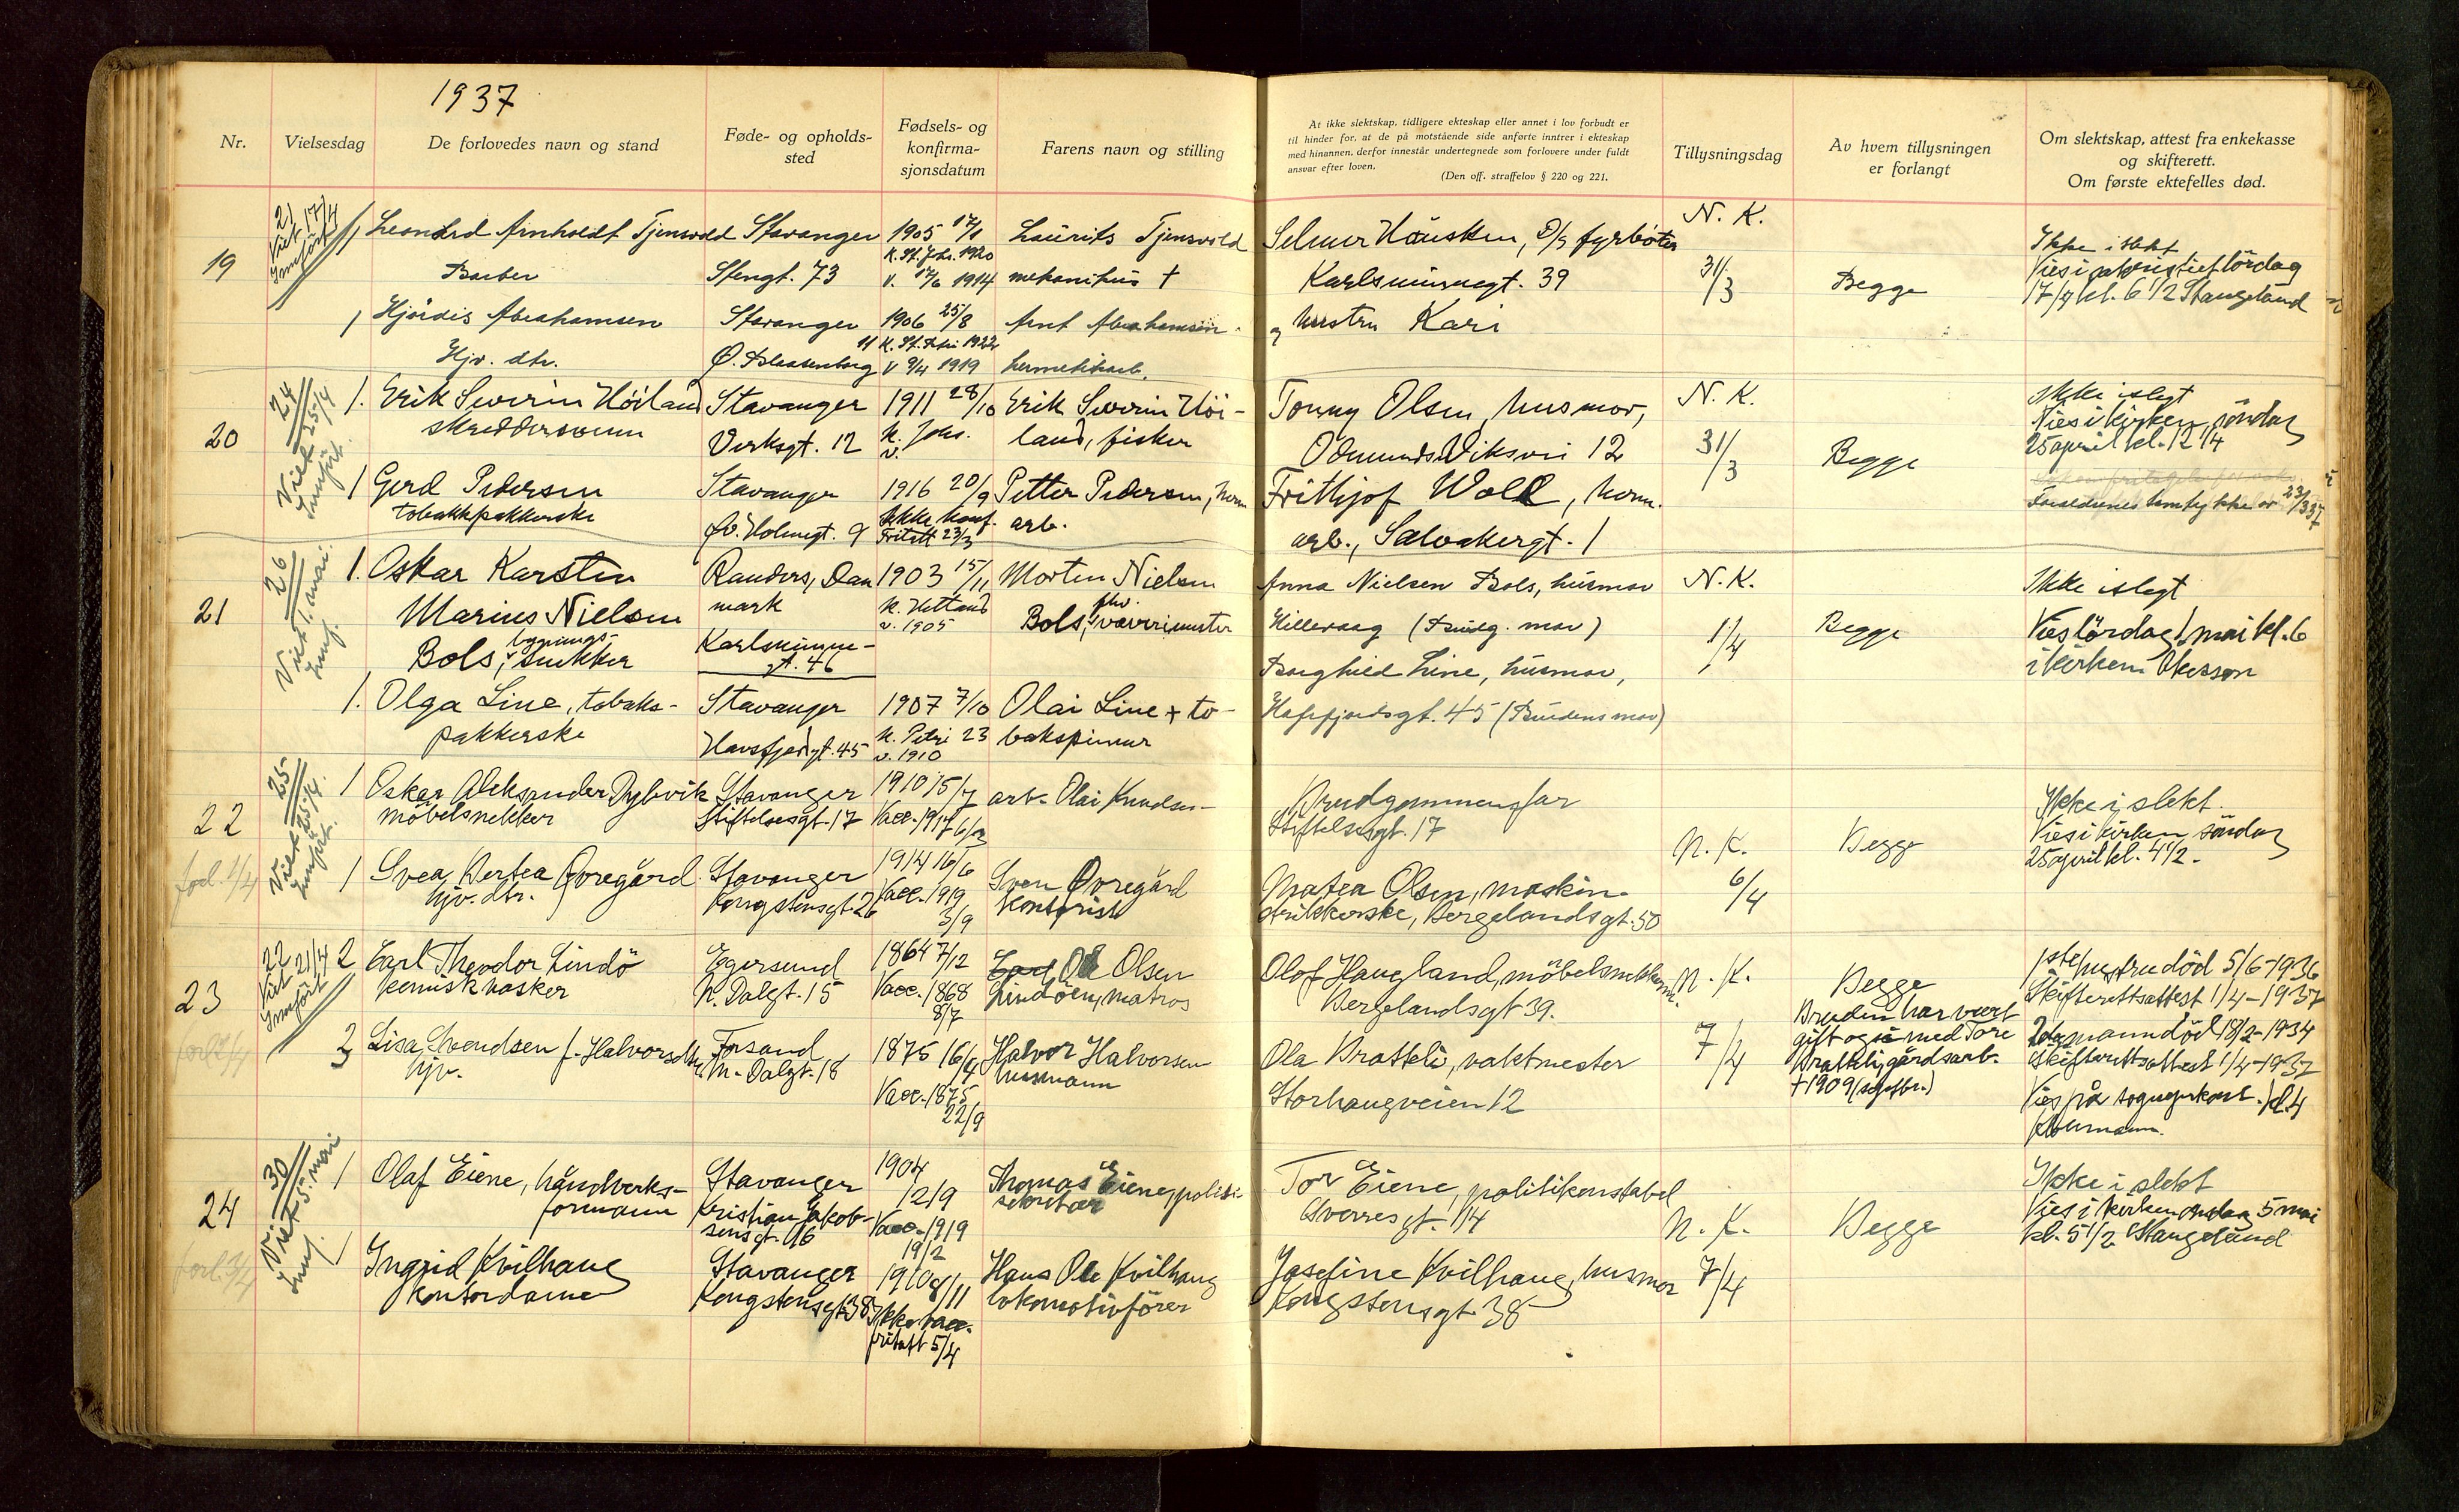 1937
Nr.
Vielsesdag
De forlovedes navn og stand
Føde- og opholds-
sted
Fødsels- og
konfirma-
sjonsdatum
Farens navn og stilling
At ikke slektskap, tidligere ekteskap eller annet i lov forbudt er
til hinder for, at de på motstående side anførte inntrer i ekteskap
med hinannen, derfor innestår undertegnede som forlovere under fuldt
ansvar efter loven.
(Den off. straffelov § 220 og 221.
Tillysningsdag
Av hvem tillysningen
er forlangt
Om slektskap, attest fra enkekasse
og skifterett.
Om første ektefelles død.
19
21
Viet 17/4
Innført
1 Leonard Arnholdt Tjensvold
Barber
Stavanger
Stengt. 73
1905 17/1
K. St. Joh. 1920
v. 17/6 1914
Laurits Tjensvold
mekanikus †
1 Hjördis Abrahamsen
Hjv. dtr.
Stavanger
Ø. Blaasenborg 11
1906 25/8
K. St. Petri 1922
v 9/4 1919
Arnt Abrahamsen
hermetikarb.
Selmer Hausken, D/S fyrböter
Karlsminnegt. 39
og hustru Kari
N. K.
31/3
Begge
Ikke i slekt
Vies i lördag
17/4 kl. 6 1/2 Stangeland
20
24
Viet 25/4
Innført.
1. Erik Severin Höiland
skreddersvenn
Stavanger
Verksgt. 12
1911 28/10
k. Johs.
v.
Erik Severin Höi-
land, fisker
1 Gerd Pedersen
tobakkpakkerske
Stavanger
Øv. Holmegt. 9
1916 20/9
Ikke konf.
Fritatt 23/3
Petter Pedersen, herm
arb.
Tonny Olsen, husmor,
Odmund Viksvei 12
Frithjof Wold, herm.
arb., Solvakergt. 1
N. K.
31/3
Begge
Ikke i slegt
Vies i kirken, söndag
25 april kl. 12 1/4
Foreldrenes samtykke av 23/3 37
21
26
Viet 1. mai.
Innf.
1. Oskar Karsten
Marius Nielsen
Bols, bygnings-
snikker
Randers, Dan
mark
Karlsminne-
gt. 46
1903 15/11
k. Hetland
v. 1905
Morten Nielsen
Bols, fhv. væverimester
1. Olga Line, tobaks-
pakkerske
Stavanger
Havsfjordgt. 45
1907 7/10
k. Petri 23
v. 1910
Olai Line + to-
bakspinner
Anna Nielsen Bols, husmor
Hillevaag (Brudg. mor)
Borghild Line, husmor,
Hafsfjordsgt. 45 (Brudens mor)
N. K.
1/4
Begge
Ikke i slegt
Vies lördag 1. mai kl. 6
i kirken Åkesson
22
forl. 1/4
25
Viet 25/4.
Innført.
1 Oskar Aleksander Dybvik
möbelsnekker
Stavanger
Stiftelsesgt. 17
1910 15/7
Vacc. 1917 6/3
arb. Olai Knudsen
1 Svea Bertea Øvregård
hjv. dtr.
Stavanger
Kongstensgt. 26
1914 16/6
Vacc. 1919
3/9
Sven Øvregård
Kontorist
Brudgommens far
Stiftelsesgt. 17
Matea Olsen, maskin-
strikkerske, Bergelandsgt. 50
N. K.
6/4
Begge
Ikke i slekt.
Vies i kirken söndag
25 april kl. 4 1/2.
23
22
Viet 21/4
Innført
2 Carl Theodor Lindö
kemisk vasker
Egersund
N. Dalgt. 15
1864 7/12
Vacc. 1868
8/7
Carl Ole Olsen
Lindöen, matros
2
3
Lisa Svendsen f. Halvorsdtr.
hjv.
Forsand
N. Dalgt. 18
1875 16/4
Vacc. 1875
22/9
Halvor Halvorsen
husmann
Olof Haugland, möbelsnekker
Bergelandsgt 39.
Ola Bratteli, vaktmester
Storhaugveien 12
N. K.
7/4
Begge
Bruden har vært
gift også med Tore
Bratteli, gårdsarb.
+ 1909 (septbr.)
1ste hustru död 5/6-1936
Skifterettsattest 1/4-1937
2den mann död 18/2-1934
Skifterettsattest 1/4-1937
Vies på sogneprkont. kl. 4
24
forl. 3/4
30
Viet 5. mai
Innf.
1 Olaf Eiene, håndverks-
formann
Stavanger
Kristian Jakob-
sensgt. 46
1904
12/9
Vacc. 1919
19/2
Thomas Eiene, politi
sekretær
1 Ingrid Kvilhaug
Kontordame
Stavanger
Kongstensgt. 38
1910 8/11
Ikke vacc.
fritatt 5/4
Hans Ole Kvilhaug
lokomotivförer
Tor Eiene, politikonstabel
Sverresgt. 14
Josefine Kvilhaug, husmor
Kongstensgt. 38
N. K.
7/4
Begge
Ikke i slekt
Vies i kirken onsdag 5 mai
kl. 5 1/2 Stangeland